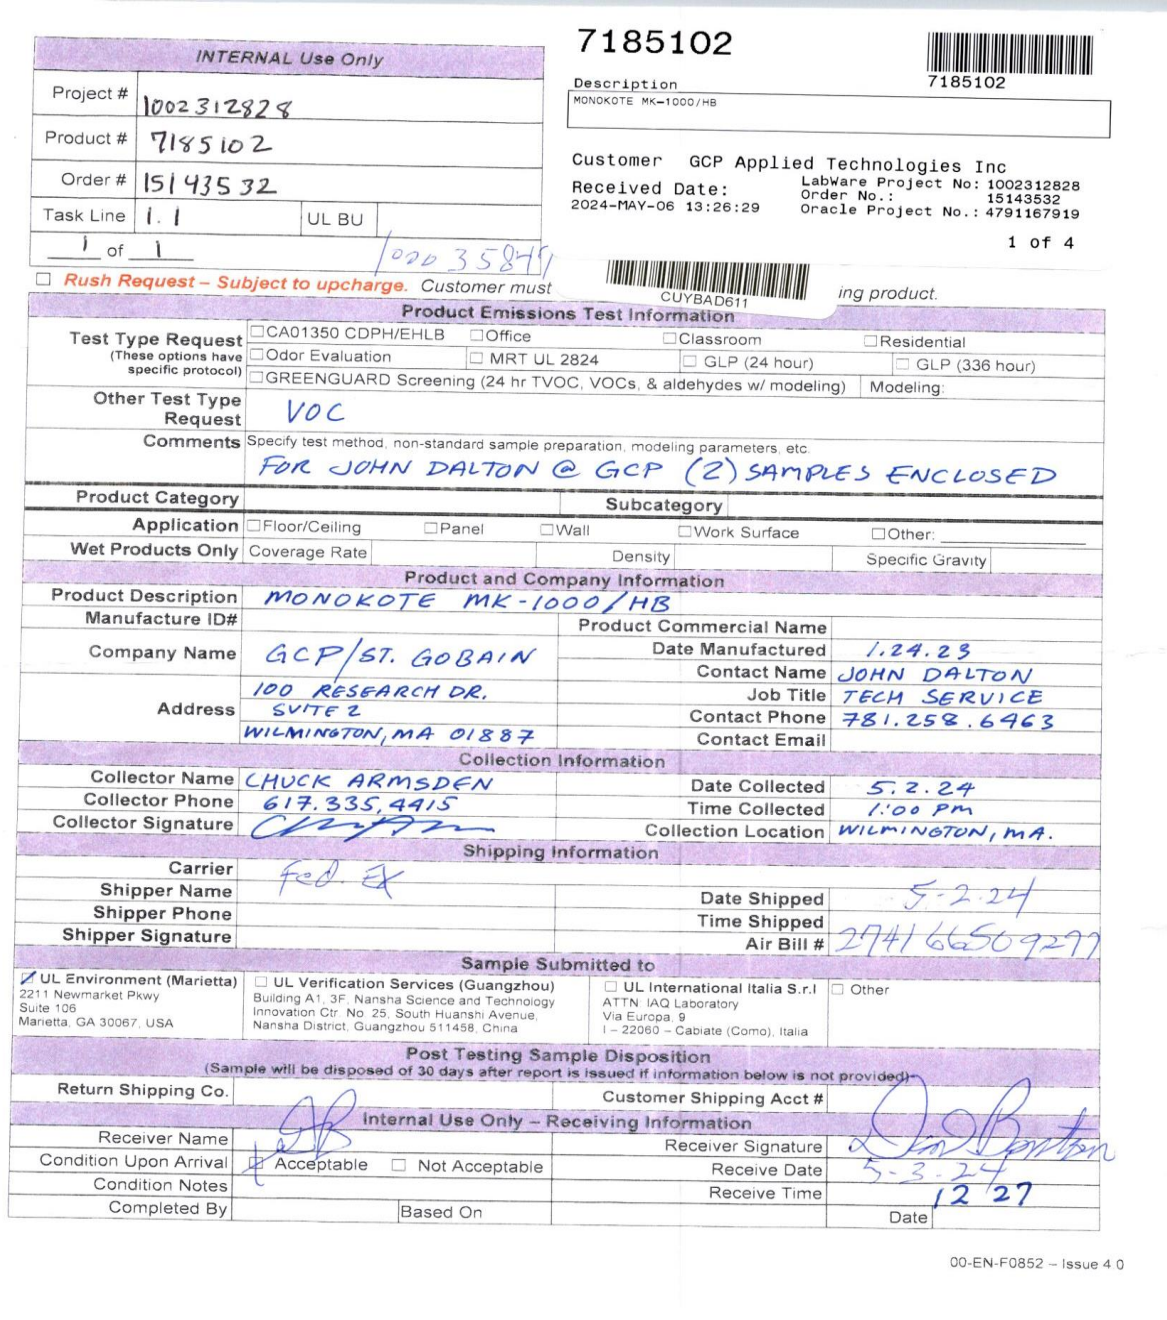 INTERNAL Use Only
Project # 1002312828
Product # 7185102
Order # 15143532
Task Line 1.1 UL BU
1 of 1
7185102
7185102
Description
MONOKOTE MK-1000/HB
Customer GCP Applied Technologies Inc
Received Date:
2024-MAY-06 13:26:29
LabWare Project No: 1002312828
Order No.: 15143532
Oracle Project No.: 4791167919
1 of 4
CUYBAD611
Rush Request – Subject to upcharge. Customer must
ing product.
Product Emissions Test Information
Test Type Request
(These options have specific protocol)
CA01350 CDPH/EHLB Office Classroom Residential
Odor Evaluation MRT UL 2824 GLP (24 hour) GLP (336 hour)
GREENGUARD Screening (24 hr TVOC, VOCs, & aldehydes w/ modeling) Modeling:
Other Test Type Request VOC
Comments Specify test method, non-standard sample preparation, modeling parameters, etc.
FOR JOHN DALTON @ GCP (2) SAMPLES ENCLOSED
Product Category Subcategory
Application Floor/Ceiling Panel Wall Work Surface Other:
Wet Products Only Coverage Rate Density Specific Gravity
Product and Company Information
Product Description MONOKOTE MK-1000/HB
Manufacture ID# Product Commercial Name
Company Name GCP/ST. GOBAIN
Date Manufactured 1.24.23
Contact Name JOHN DALTON
Address 100 RESEARCH DR.
SUITE 2
WILMINGTON, MA 01887
Job Title TECH SERVICE
Contact Phone 781.258.6463
Contact Email
Collection Information
Collector Name CHUCK ARMSDEN Date Collected 5.2.24
Collector Phone 617.335.4415 Time Collected 1:00 PM
Collector Signature Collection Location WILMINGTON, MA.
Shipping Information
Carrier Fed. EX
Shipper Name Date Shipped 5-2-24
Shipper Phone Time Shipped
Shipper Signature Air Bill # 274166509277
Sample Submitted to
UL Environment (Marietta)
2211 Newmarket Pkwy
Suite 106
Marietta, GA 30067, USA
UL Verification Services (Guangzhou)
Building A1, 3F, Nansha Science and Technology
Innovation Ctr. No. 25, South Huanshi Avenue,
Nansha District, Guangzhou 511458, China
UL International Italia S.r.l
ATTN: IAQ Laboratory
Via Europa, 9
I – 22060 – Cabiate (Como), Italia
Other
Post Testing Sample Disposition
(Sample will be disposed of 30 days after report is issued if information below is not provided)
Return Shipping Co. Customer Shipping Acct #
Internal Use Only – Receiving Information
Receiver Name Receiver Signature
Condition Upon Arrival Acceptable Not Acceptable Receive Date 5-3-24
Condition Notes Receive Time 12 27
Completed By Based On Date
00-EN-F0852 – Issue 4 0